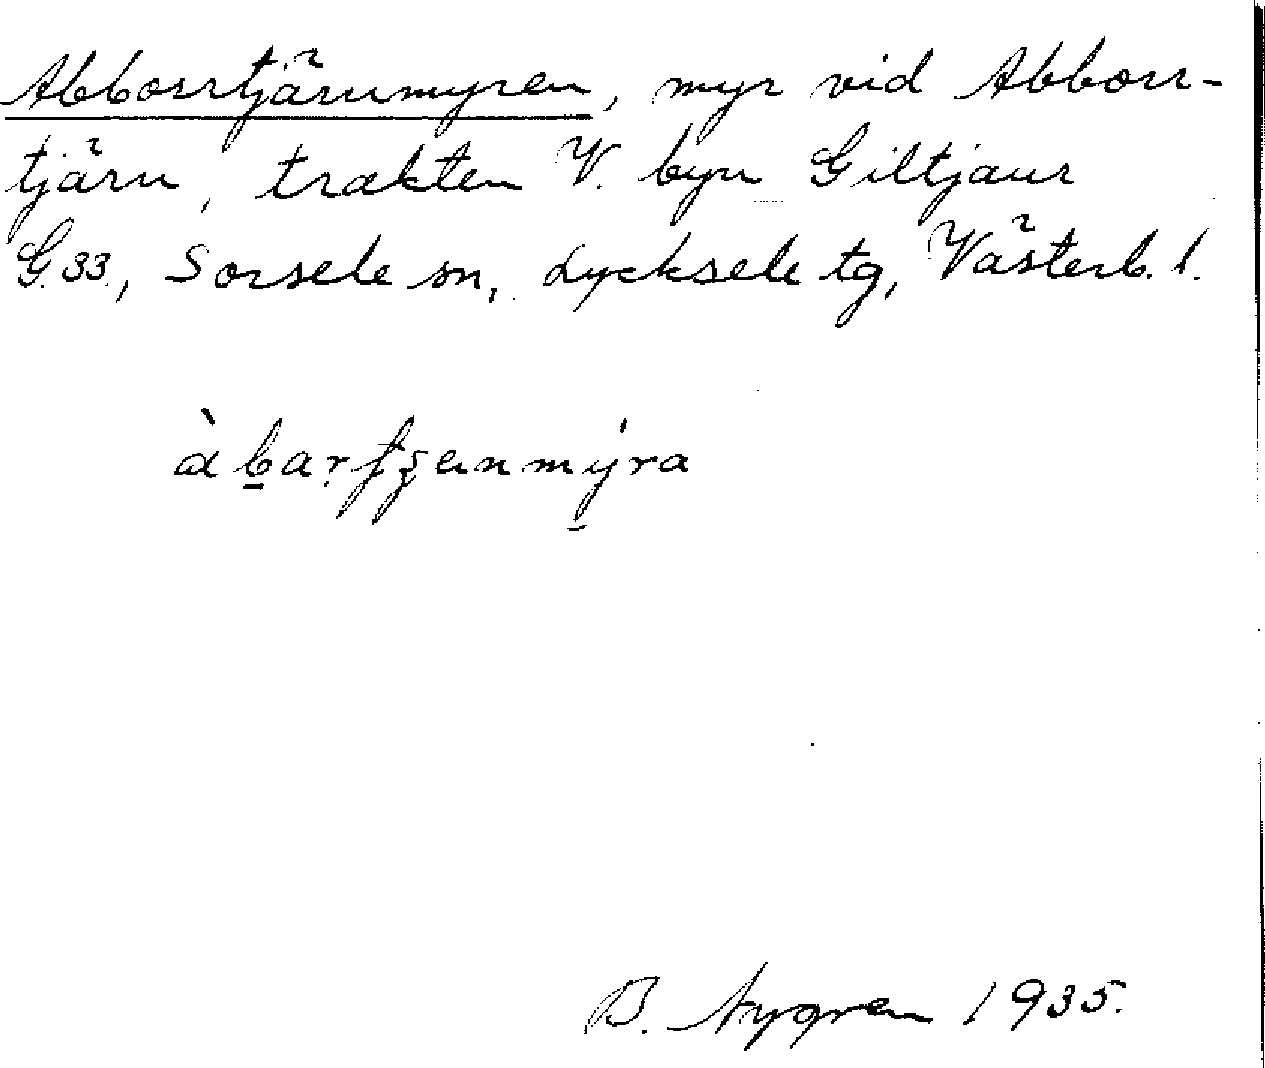 Abborrtjärnmyren, myr vid Abborr-
tjärn, trakten V. byn Giltjaur
G.33., Sorsele sn, Lycksele tg, Västerb. l.
B. Nygren 1935.